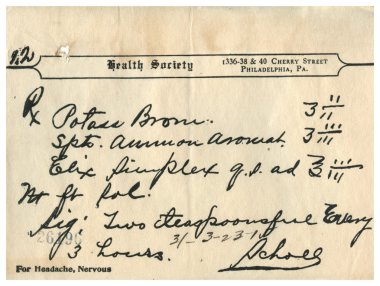 92
Health Society
1336-38 & 40 Cherry Street
Philadelphia, Pa.
℞ Potass Brom. ʒ ii
Spts. Ammon Aromat. ʒ iii
Elix Simplex q.s. ad ℥ iii
M ft Sol.
Sig; Two teaspoonsful Every
3 hours. 3/- 3-23-1
26196
Scholl
For Headache, Nervous